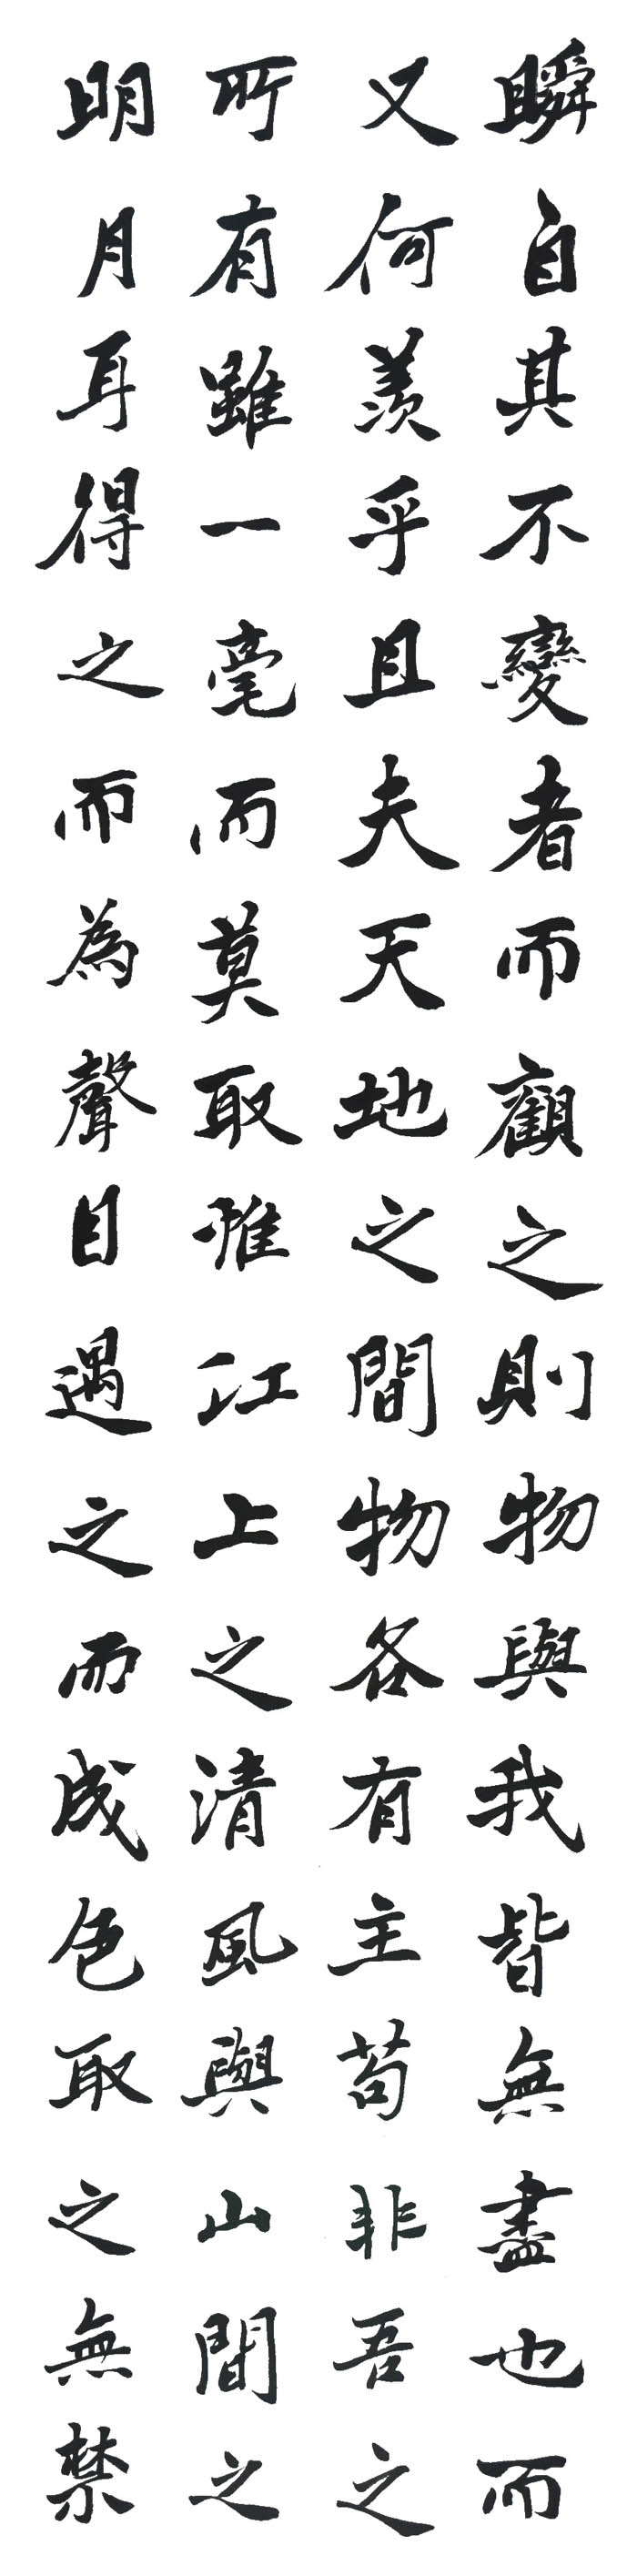 瞬自其不變者而觀之則物與我皆無盡也而
又何羨乎且夫天地之間物各有主苟非吾之
所有雖一毫而莫取惟江上之清風與山間之
明月耳得之而為聲目遇之而成色取之無禁